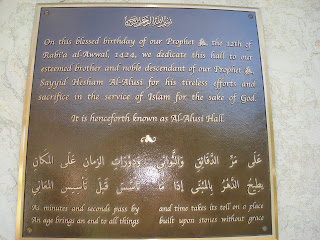 بسم الله الرحمن الرحيم
On this blessed birthday of our Prophet ﷺ, the 12th of
Rabi'a al-Awwal, 1424, we dedicate this hall to our
esteemed brother and noble descendant of our Prophet ﷺ,
Sayyid Hesham Al-Alusi for his tireless efforts and
sacrifice in the service of Islam for the sake of God.
It is henceforth known as Al-Alusi Hall.
عَلَى مَرِّ الدَّقَائِقِ وَالثَّوَانِي وَدَوْرَاتِ الزَّمَانِ عَلَى المَكَانِ
يُطِيحُ الدَّهْرُ بِالمَبْنَى إِذَا مَا تَأَسَّسَ قَبْلَ تَأْسِيسِ المَعَانِي
As minutes and seconds pass by and time takes its toll on a place
An age brings an end to all things built upon stones without grace